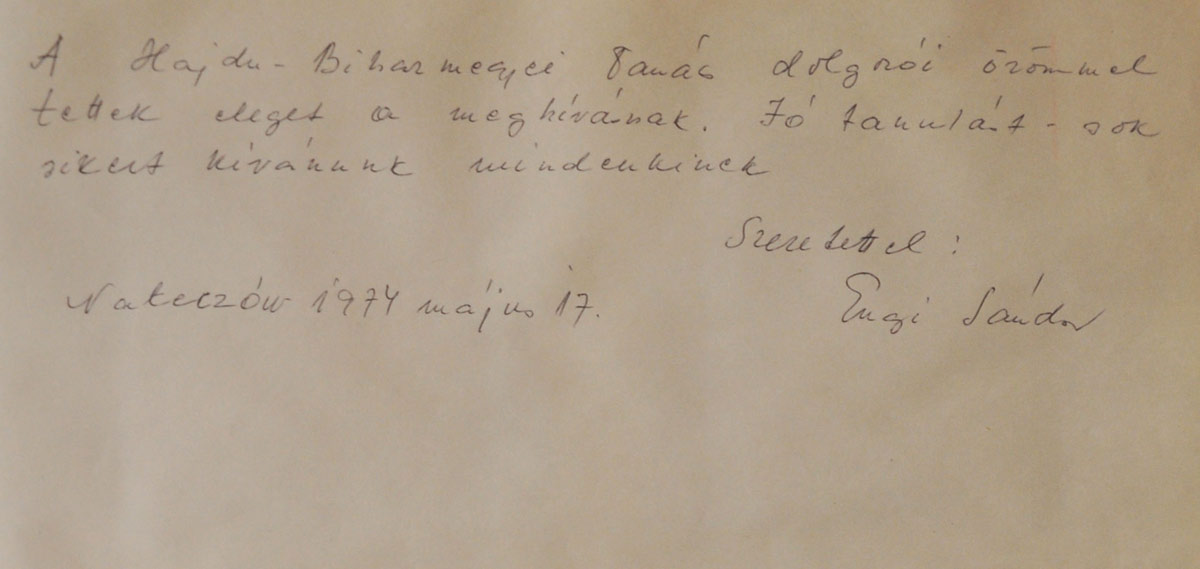 A Hajdu-Biharmegyei Tanács dolgozói örömmel
tettek eleget a meghívásnak. Jó tanulást - sok
sikert kívánunk mindenkinek
Szeretettel :
Nałeczów 1974 május 17.
Engi Sándor